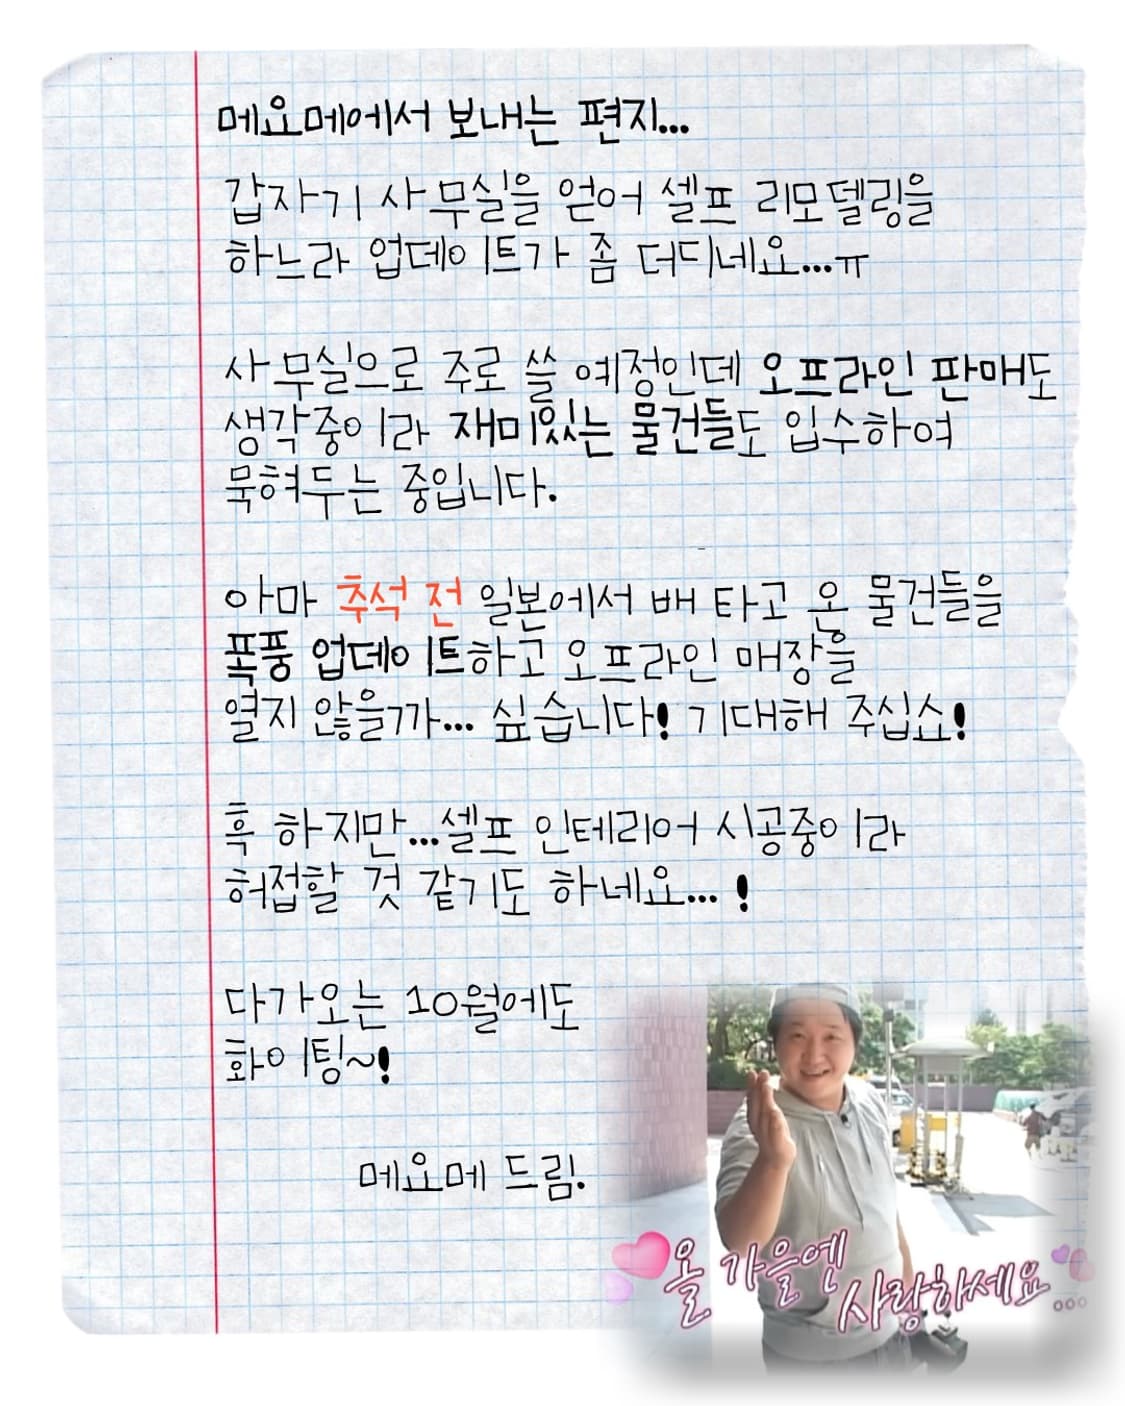 메요메에서 보내는 편지...
갑자기 사무실을 얻어 셀프 리모델링을
하느라 업데이트가 좀 더디네요...ㅠ
사무실으로 주로 쓸 예정인데 오프라인 판매도
생각중이라 재미있는 물건들도 입수하여
묵혀두는 중입니다.
아마 추석 전 일본에서 배 타고 온 물건들을
폭풍 업데이트하고 오프라인 매장을
열지 않을까... 싶습니다! 기대해 주십쇼!
흑 하지만...셀프 인테리어 시공중이라
허접할 것 같기도 하네요... !
다가오는 10월에도
화이팅~!
메요메 드림.
올 가을엔
사랑하세요...